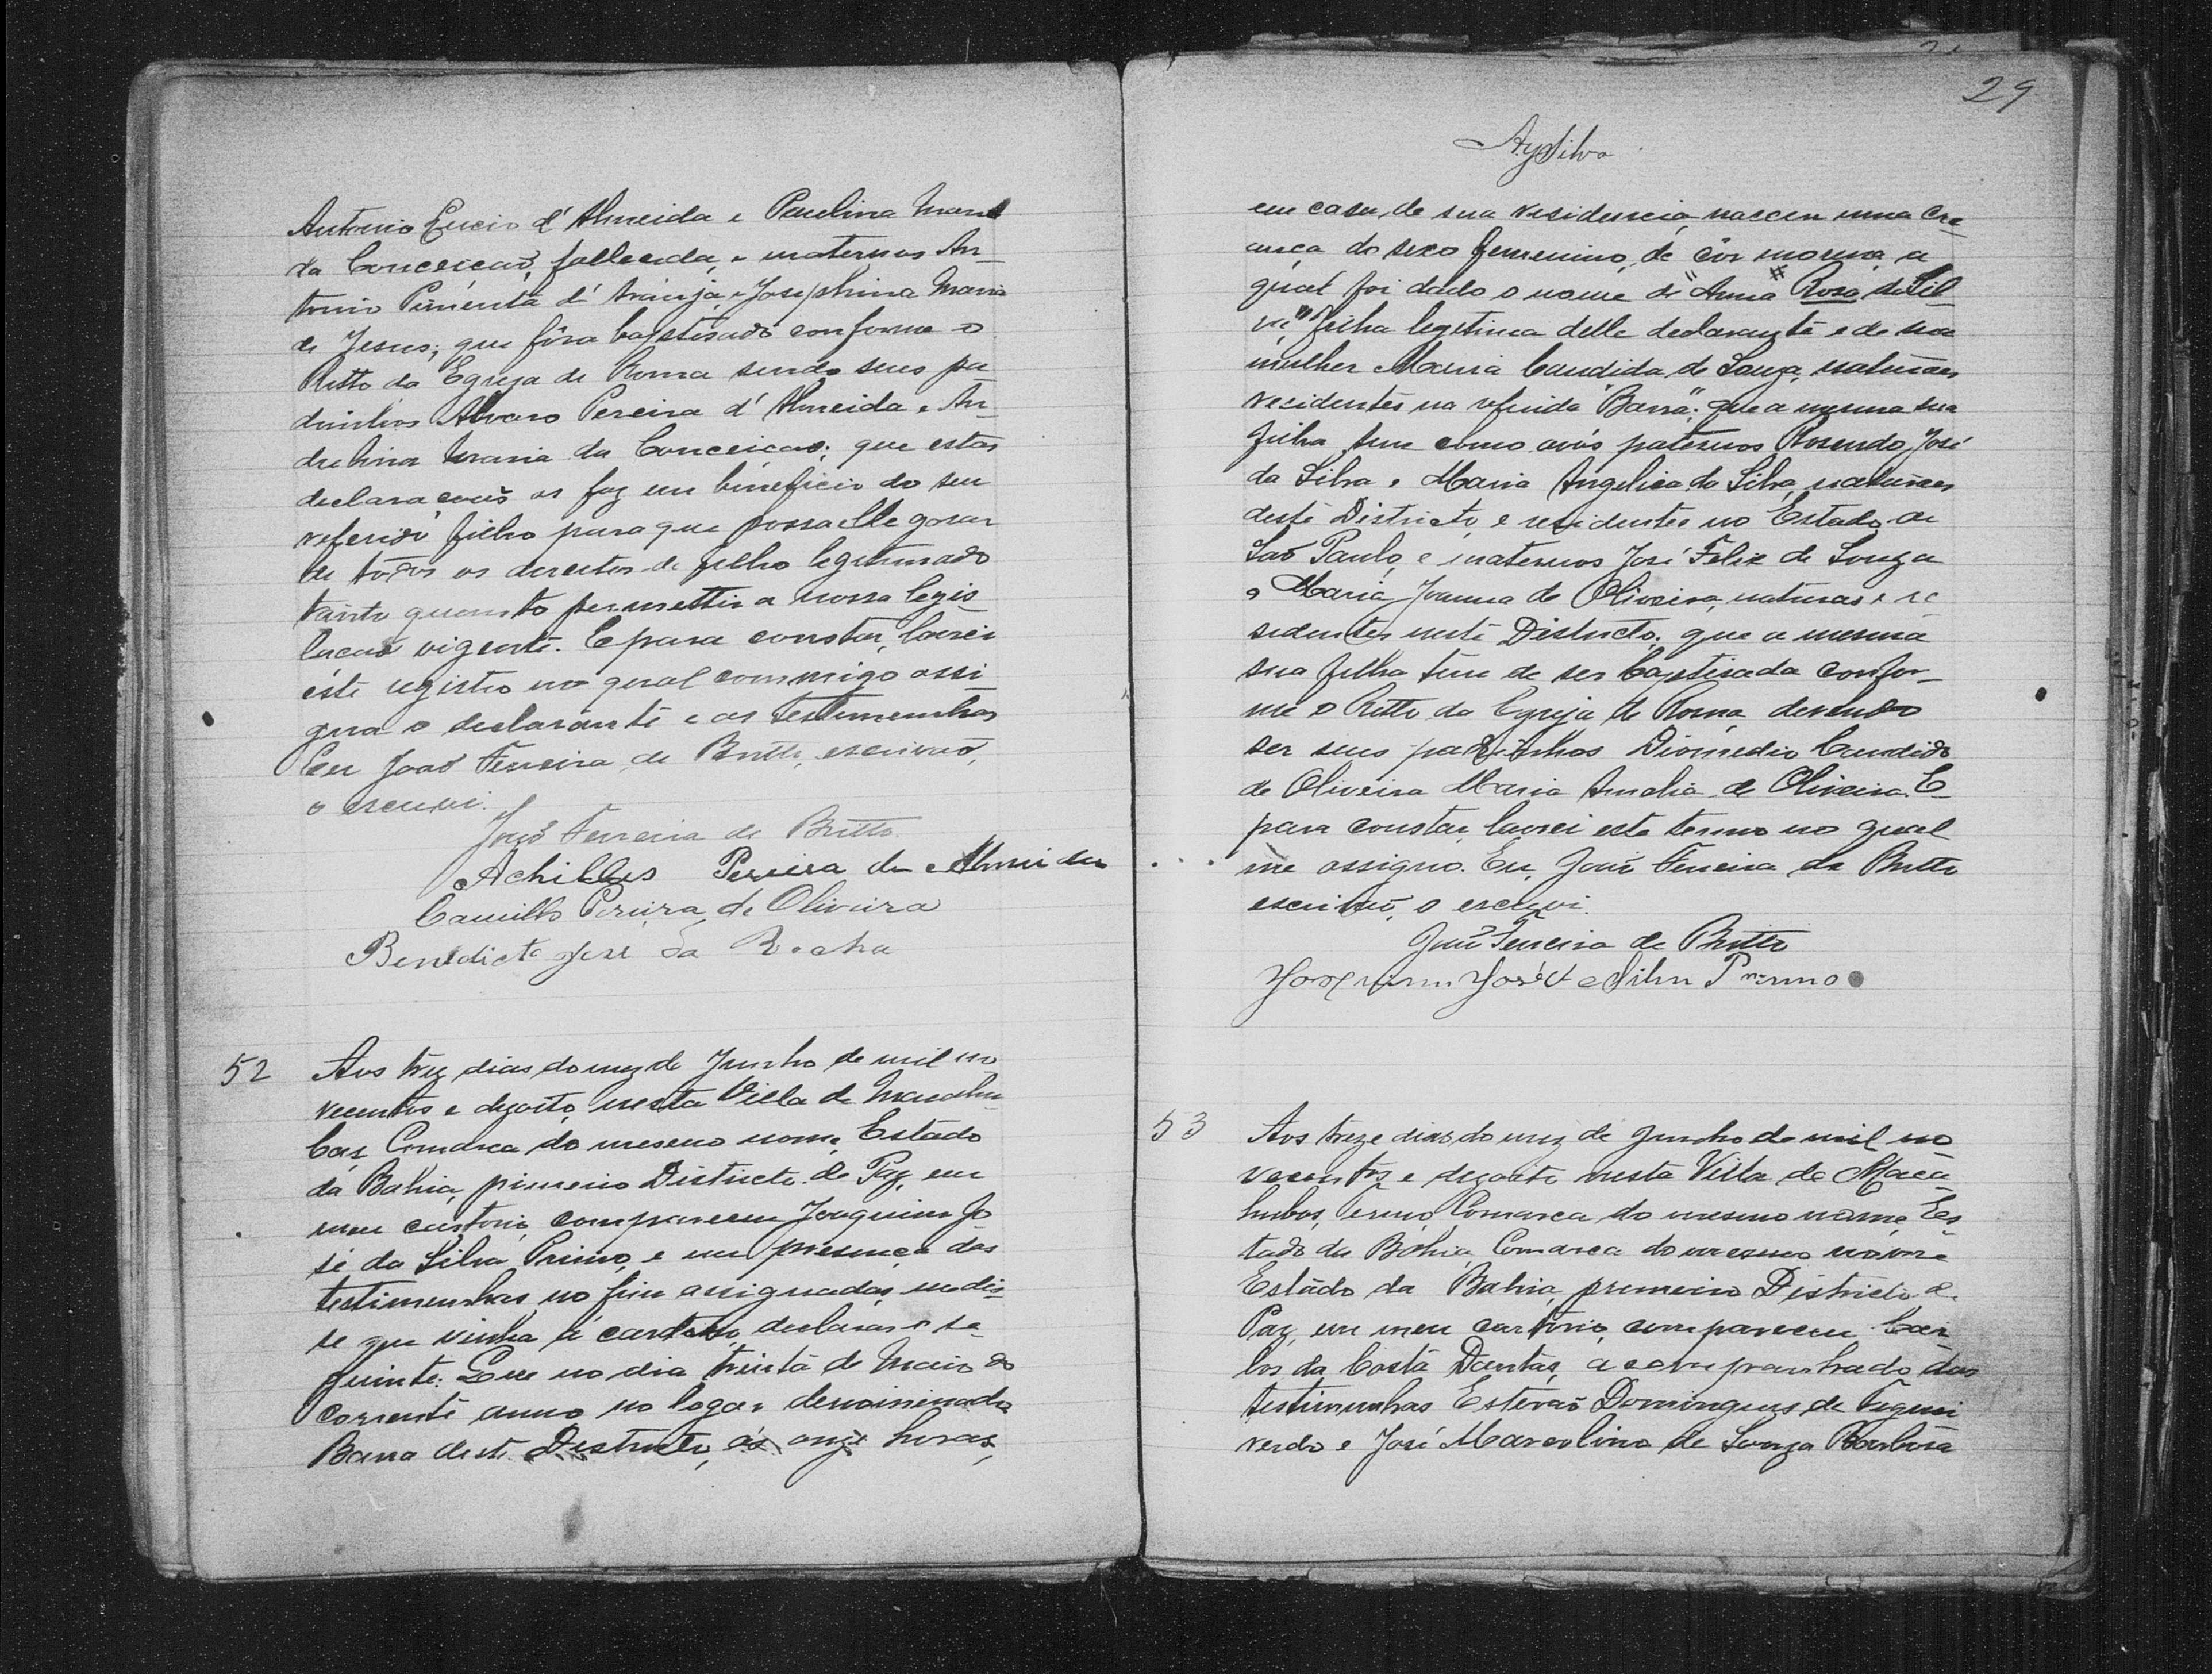 Antonio Lucio d'Almeida e Paulina Maria
da Conceicaõ, fallecida, e maternos An-
tonio Pimenta d'Araujo e Josephina Maria
de Jesus; que fôra baptisado conforme o
Ritto da Egreja de Roma sendo seus pa-
drinhos Alvaro Pereira d'Almeida e An-
drelina Maria da Conceicaõ; que estas
declaracoẽs as faz em beneficio do seu
referido filho para que possa elle gosar
de todos os direitos de filho legitimado
tanto quanto permettir a nossa legis
lacaõ vigente. E para constar, lavrei
este registro no qual commigo assi
gna o declarante e as testimenhas
Eu Joaõ Ferreira de Britto, escrivaõ,
o escrevi.
Joaõ Ferreira de Britto.
Achilles Pereira de Almeida
Camillo Pereira de Oliveira
Benedicto José da Rocha
52 Aos trez dias do mez de Junho de mil no
vecentos e dezoito, nesta Villa de Macahu
bas, Comarca do mesmo nome, Estado
da Bahia, primeiro Districto de Paz, em
meu cartorio, compareceu Joaquim Jo
sé da Silva Primo, e em presença das
testimenhas no fim assignadas, me dis-
se que vinha á cartorio declarar o se-
guinte: Que no dia trinta de Maio do
corrente anno no logar denominado
Barra deste Districto, ás onze horas,
29
AySilva
em casa de sua residencia, nasceu uma cre
ança do sexo femenino, de côr morena, a
qual foi dado o nome de "Anna Rosa da Sil
va" filha legitima delle declarante e de sua
mulher Maria Candida de Souza, naturaes
residentes na referida "Barra"; que a mesma sua
filha tem como avós paternos Rosendo José
da Silva e Maria Angelica da Silva, naturaes
deste Districto, e residentes no Estado de
Saõ Paulo, e maternos José Felix de Souza
e Maria Joanna de Oliveira, naturaes e re
sidentes neste Districto; que a mesma
sua filha tem de ser baptisada confor-
me o Ritto da Egreja de Roma, devendo
ser seus padrinhos Diomedio Candido
de Oliveira Maria Amelia de Oliveira. E
para constar, lavrei este termo no qual
me assigno. Eu, Joaõ Ferreira de Britto
escrivaõ, o escrevi.
Joaõ Ferreira de Britto
Joaquim José da Silva Primo
53 Aos treze dias do mez de Junho de mil no
vecentos e dezoito nesta Villa de Maca
hubas, termo, Comarca do mesmo nome, Es
tado da Bahia, Comarca do mesmo nome
Estado da Bahia, premeiro Districto de
Paz, em meu cartorio, compareceu Car
los da Costa Dantas, acompanhado das
testimunhas Estevaõ Domingues de Figuei
redo e José Marcolino de Souza Barbosa